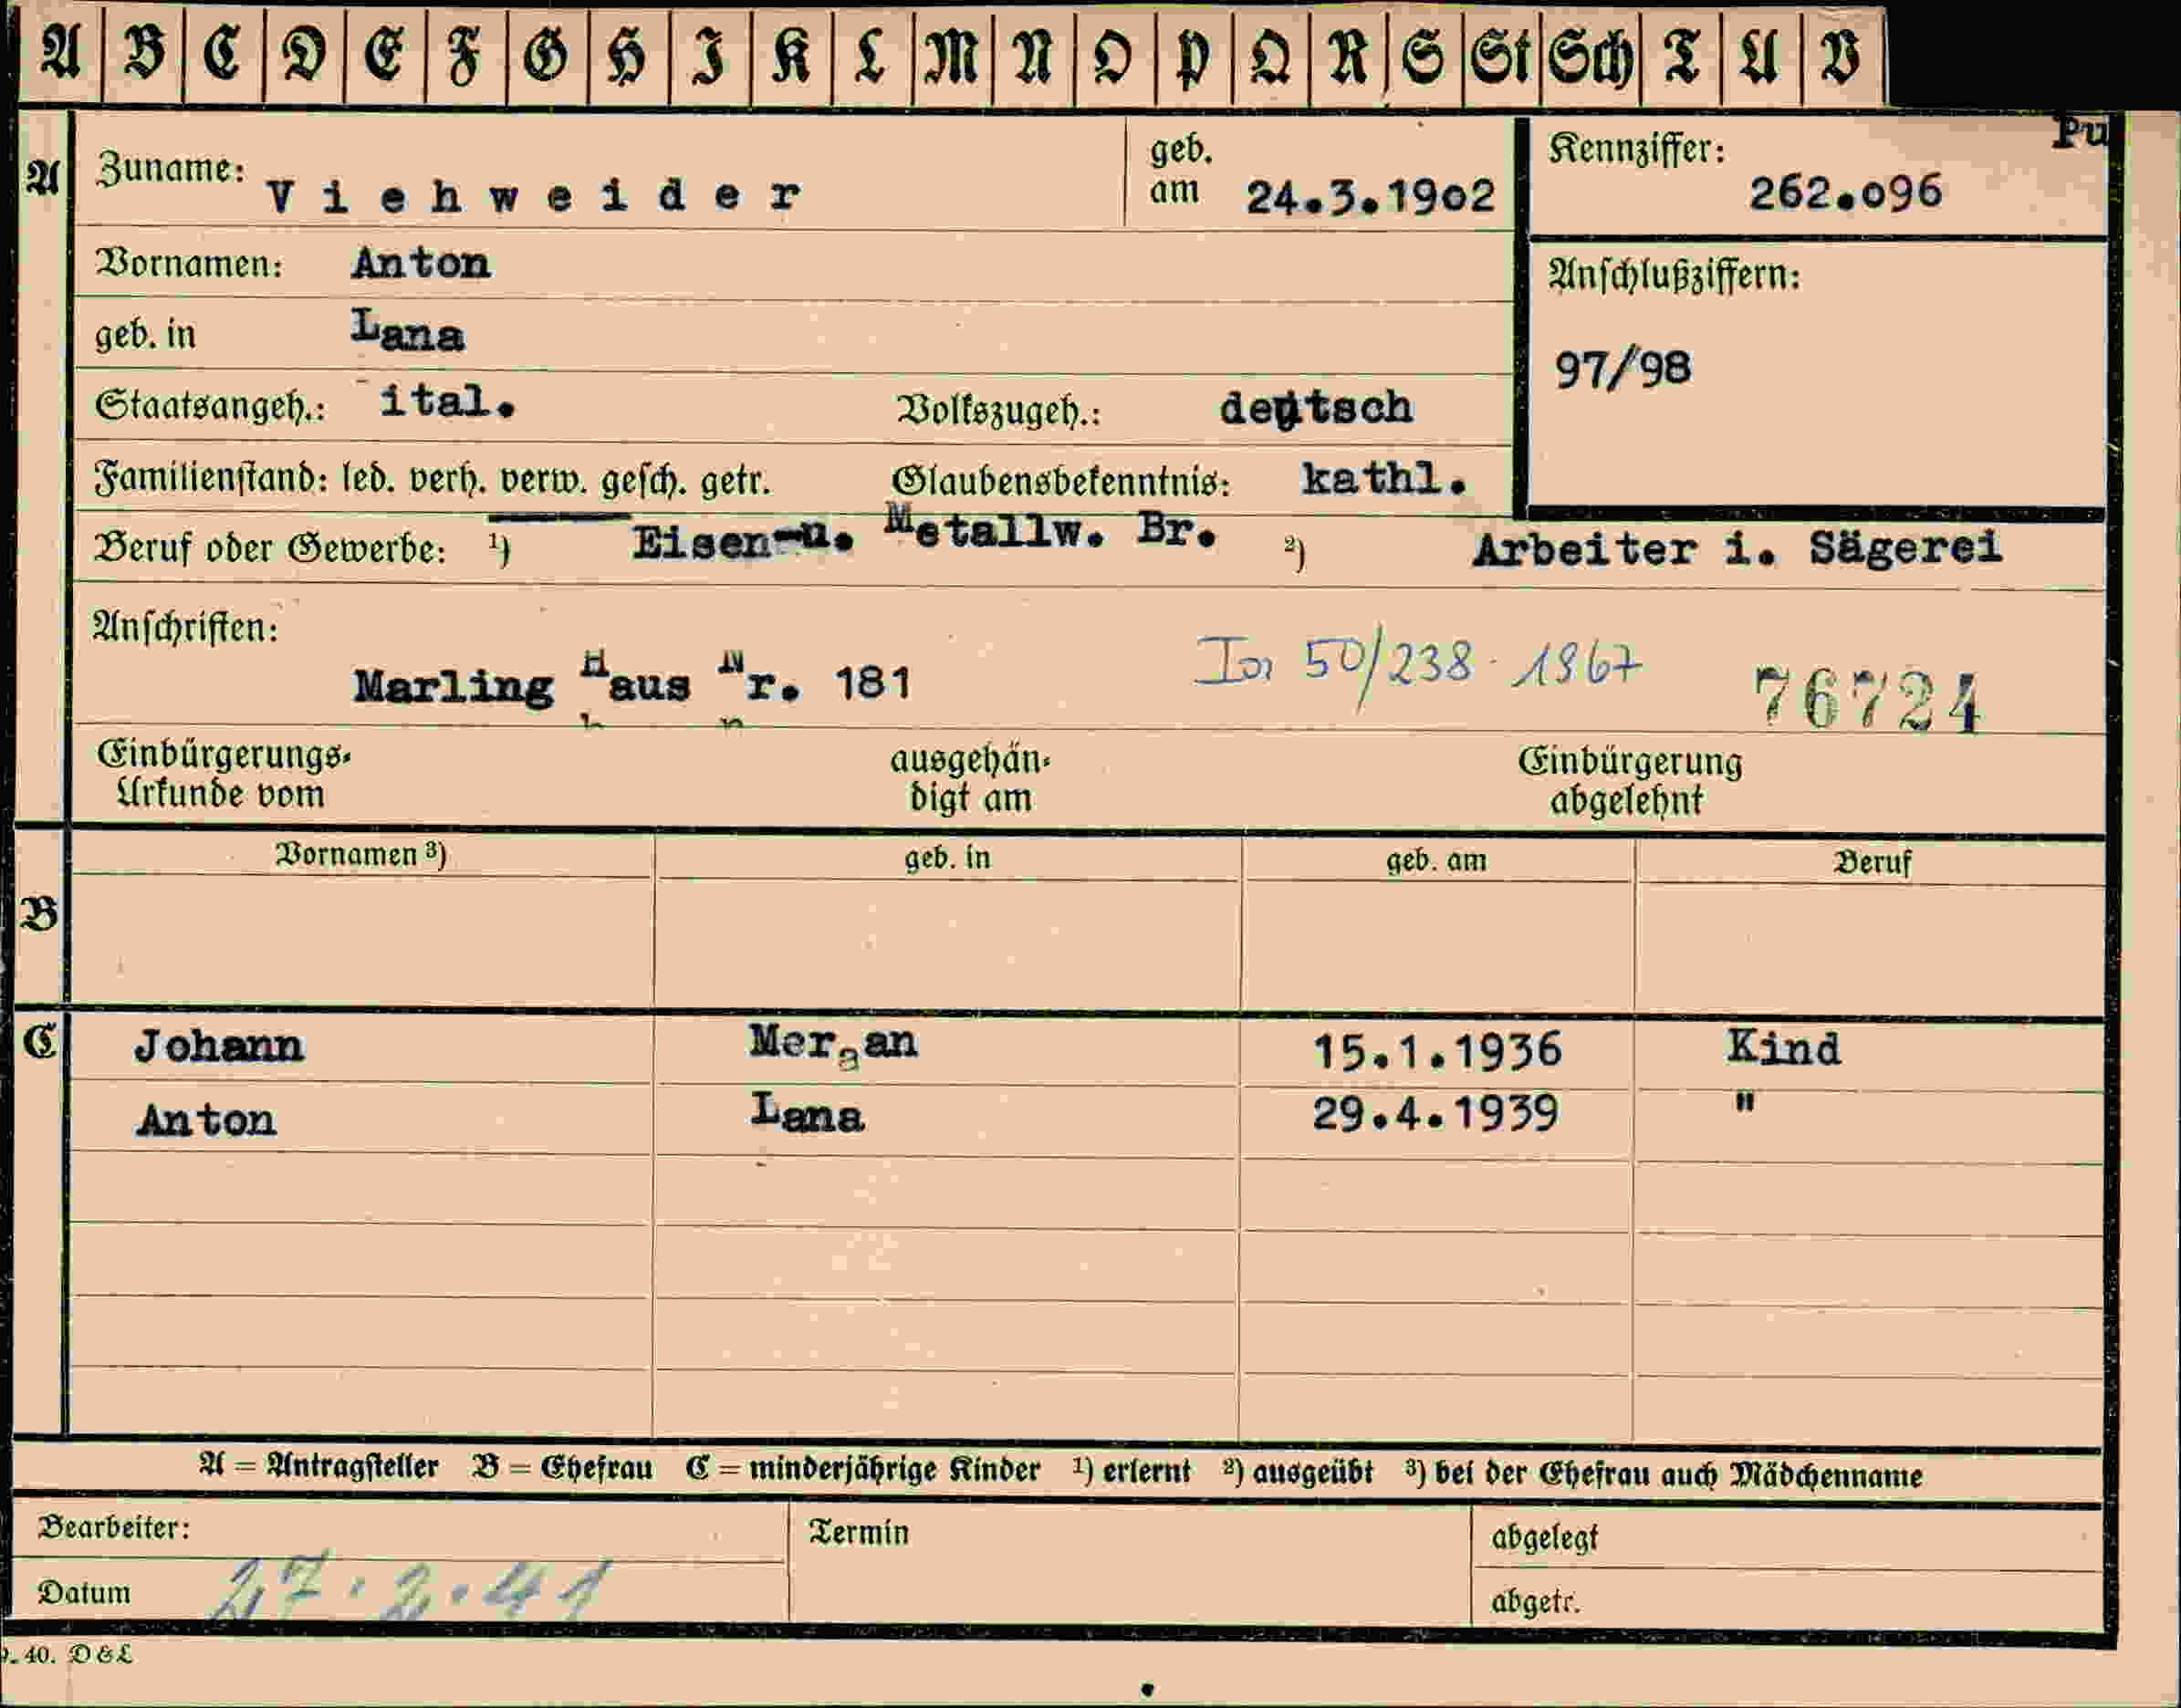 A B C D E F G H I K L M N O P Q R S St Sch T U V
Pu
A
Zuname: Viehweider
geb. am 24.3.1902
Kennziffer: 262.096
Vornamen: Anton
Anschlußziffern:
97/98
geb. in Lana
Staatsangeh.: ital. Volkszugeh.: deutsch
Familienstand: led. verh. verw. gesch. getr. Glaubensbekenntnis: kathl.
Beruf oder Gewerbe: 1) Eisen-u. Metallw. Br. 2) Arbeiter i. Sägerei
Anschriften:
Marling Haus Nr. 181 50/238 1867 76724
Einbürgerungs-
Urkunde vom
ausgehän-
digt am
Einbürgerung
abgelehnt
Vornamen 3) geb. in geb. am Beruf
B
C Johann Meraan 15.1.1936 Kind
Anton Lana 29.4.1939 "
A = Antragsteller B = Ehefrau C = minderjährige Kinder 1) erlernt 2) ausgeübt 3) bei der Ehefrau auch Mädchenname
Bearbeiter: Termin abgelegt
Datum 27.2.41 abgetr.
40. D&L